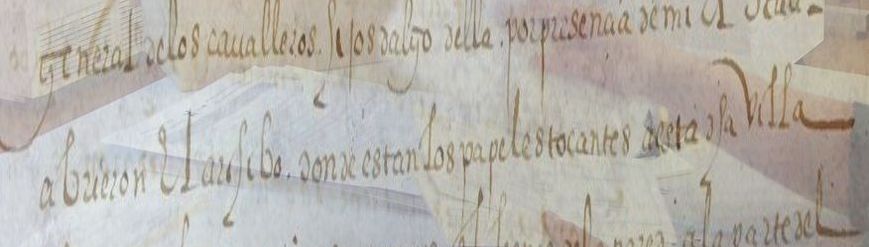 general delos cavalleros. hijos dalgo della. por presencia de mi el
abrieron El archibo. donde estan los papeles tocantes aesta dha Villa
a la parte del